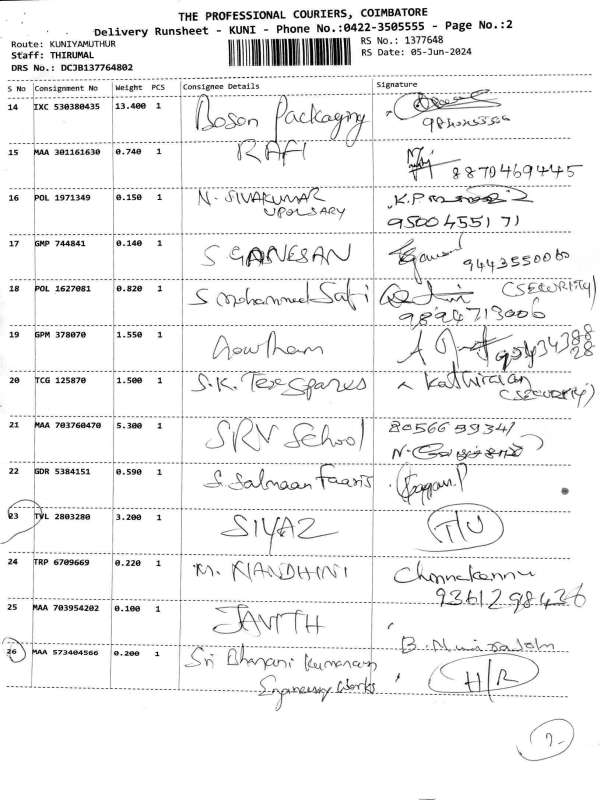 THE PROFESSIONAL COURIERS, COIMBATORE
Delivery Runsheet - KUNI - Phone No.:0422-3505555 - Page No.:2
Route: KUNIYAMUTHUR
RS No.: 1377648
Staff: THIRUMAL
RS Date: 05-Jun-2024
DRS No.: DCJB137764802
S No Consignment No Weight PCS Consignee Details Signature
14 IXC 530380435 13.400 1 Boson Packaging
15 MAA 301161630 0.740 1 RAFI 8870469445
16 POL 1971349 0.150 1 N. SIVAKUMAR
UPOLSARY
9500455171
17 GMP 744841 0.140 1 S GANESAN
9443550060
18 POL 1627081 0.820 1 S Mohammed Safi (SECURITY)
9894713006
19 GPM 378070 1.550 1 Gowtham
20 TCG 125870 1.500 1 S.K. Tex Spares Kathiravan
(SECURITY)
21 MAA 703760470 5.300 1 SRV School
22 GDR 5384151 0.590 1 S. Salmaan Faaris
23 TVL 2803280 3.200 1 SIYAZ T/U
24 TRP 6709669 0.220 1 M. NANDHINI Chinnakannu
9361298436
25 MAA 703954202 0.100 1 JAVITH
26 MAA 573404566 0.200 1 Sri Bhavani Kumaran
Engineering Works
H/R